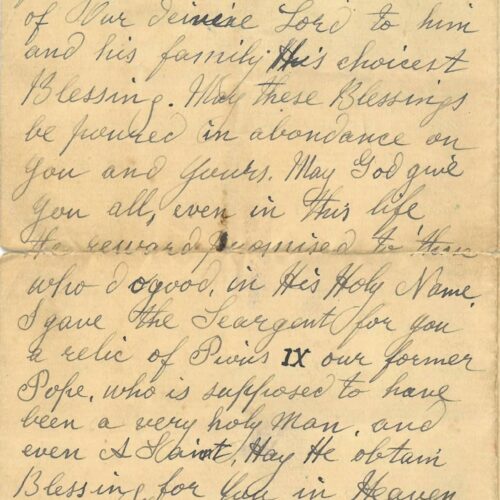 of Our deivine Lord to him
and his family His choicest
Blessing. May these Blessings
be poured in abondance on
you and yours. May God give
you all, even in this life
the reward promised to them
who do good, in His Holy Name.
I gave the Seargent for you
a relic of Pivus IX our former
Pope, who is supposed to have
been a very holy Man, and
even A Saint, May He obtain
Blessing for you in Heaven